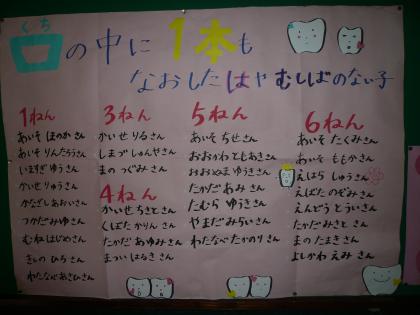 くち
口の中に1本も
なおしたはやむしばのない子
1ねん
あいそ ほのか さん
あいそ りんたろう さん
いますぎ ゆう さん
かいせ りゅう さん
かなざし あおい さん
つかだ みゆ さん
むね はじめ さん
きしの ひろ さん
わたなべ あさひ さん
3ねん
かいせ りる さん
しまづ しゅんや さん
まの つぐみ さん
4ねん
かいせ ちさと さん
くぼた かりん さん
たかだ あゆみ さん
まつい はるき さん
5ねん
あいそ ちせ さん
おおかわ ともあき さん
おおぬま ゆうき さん
たかだ あみ さん
たむら ゆうき さん
やまだ みらい さん
わたなべ たかのり さん
6ねん
あいそ たくみ さん
あいそ ももか さん
えはら しゅう さん
えばた のぞみ さん
えんどう とうい さん
たかだ みさと さん
まの たまき さん
よしかわ えみ さん